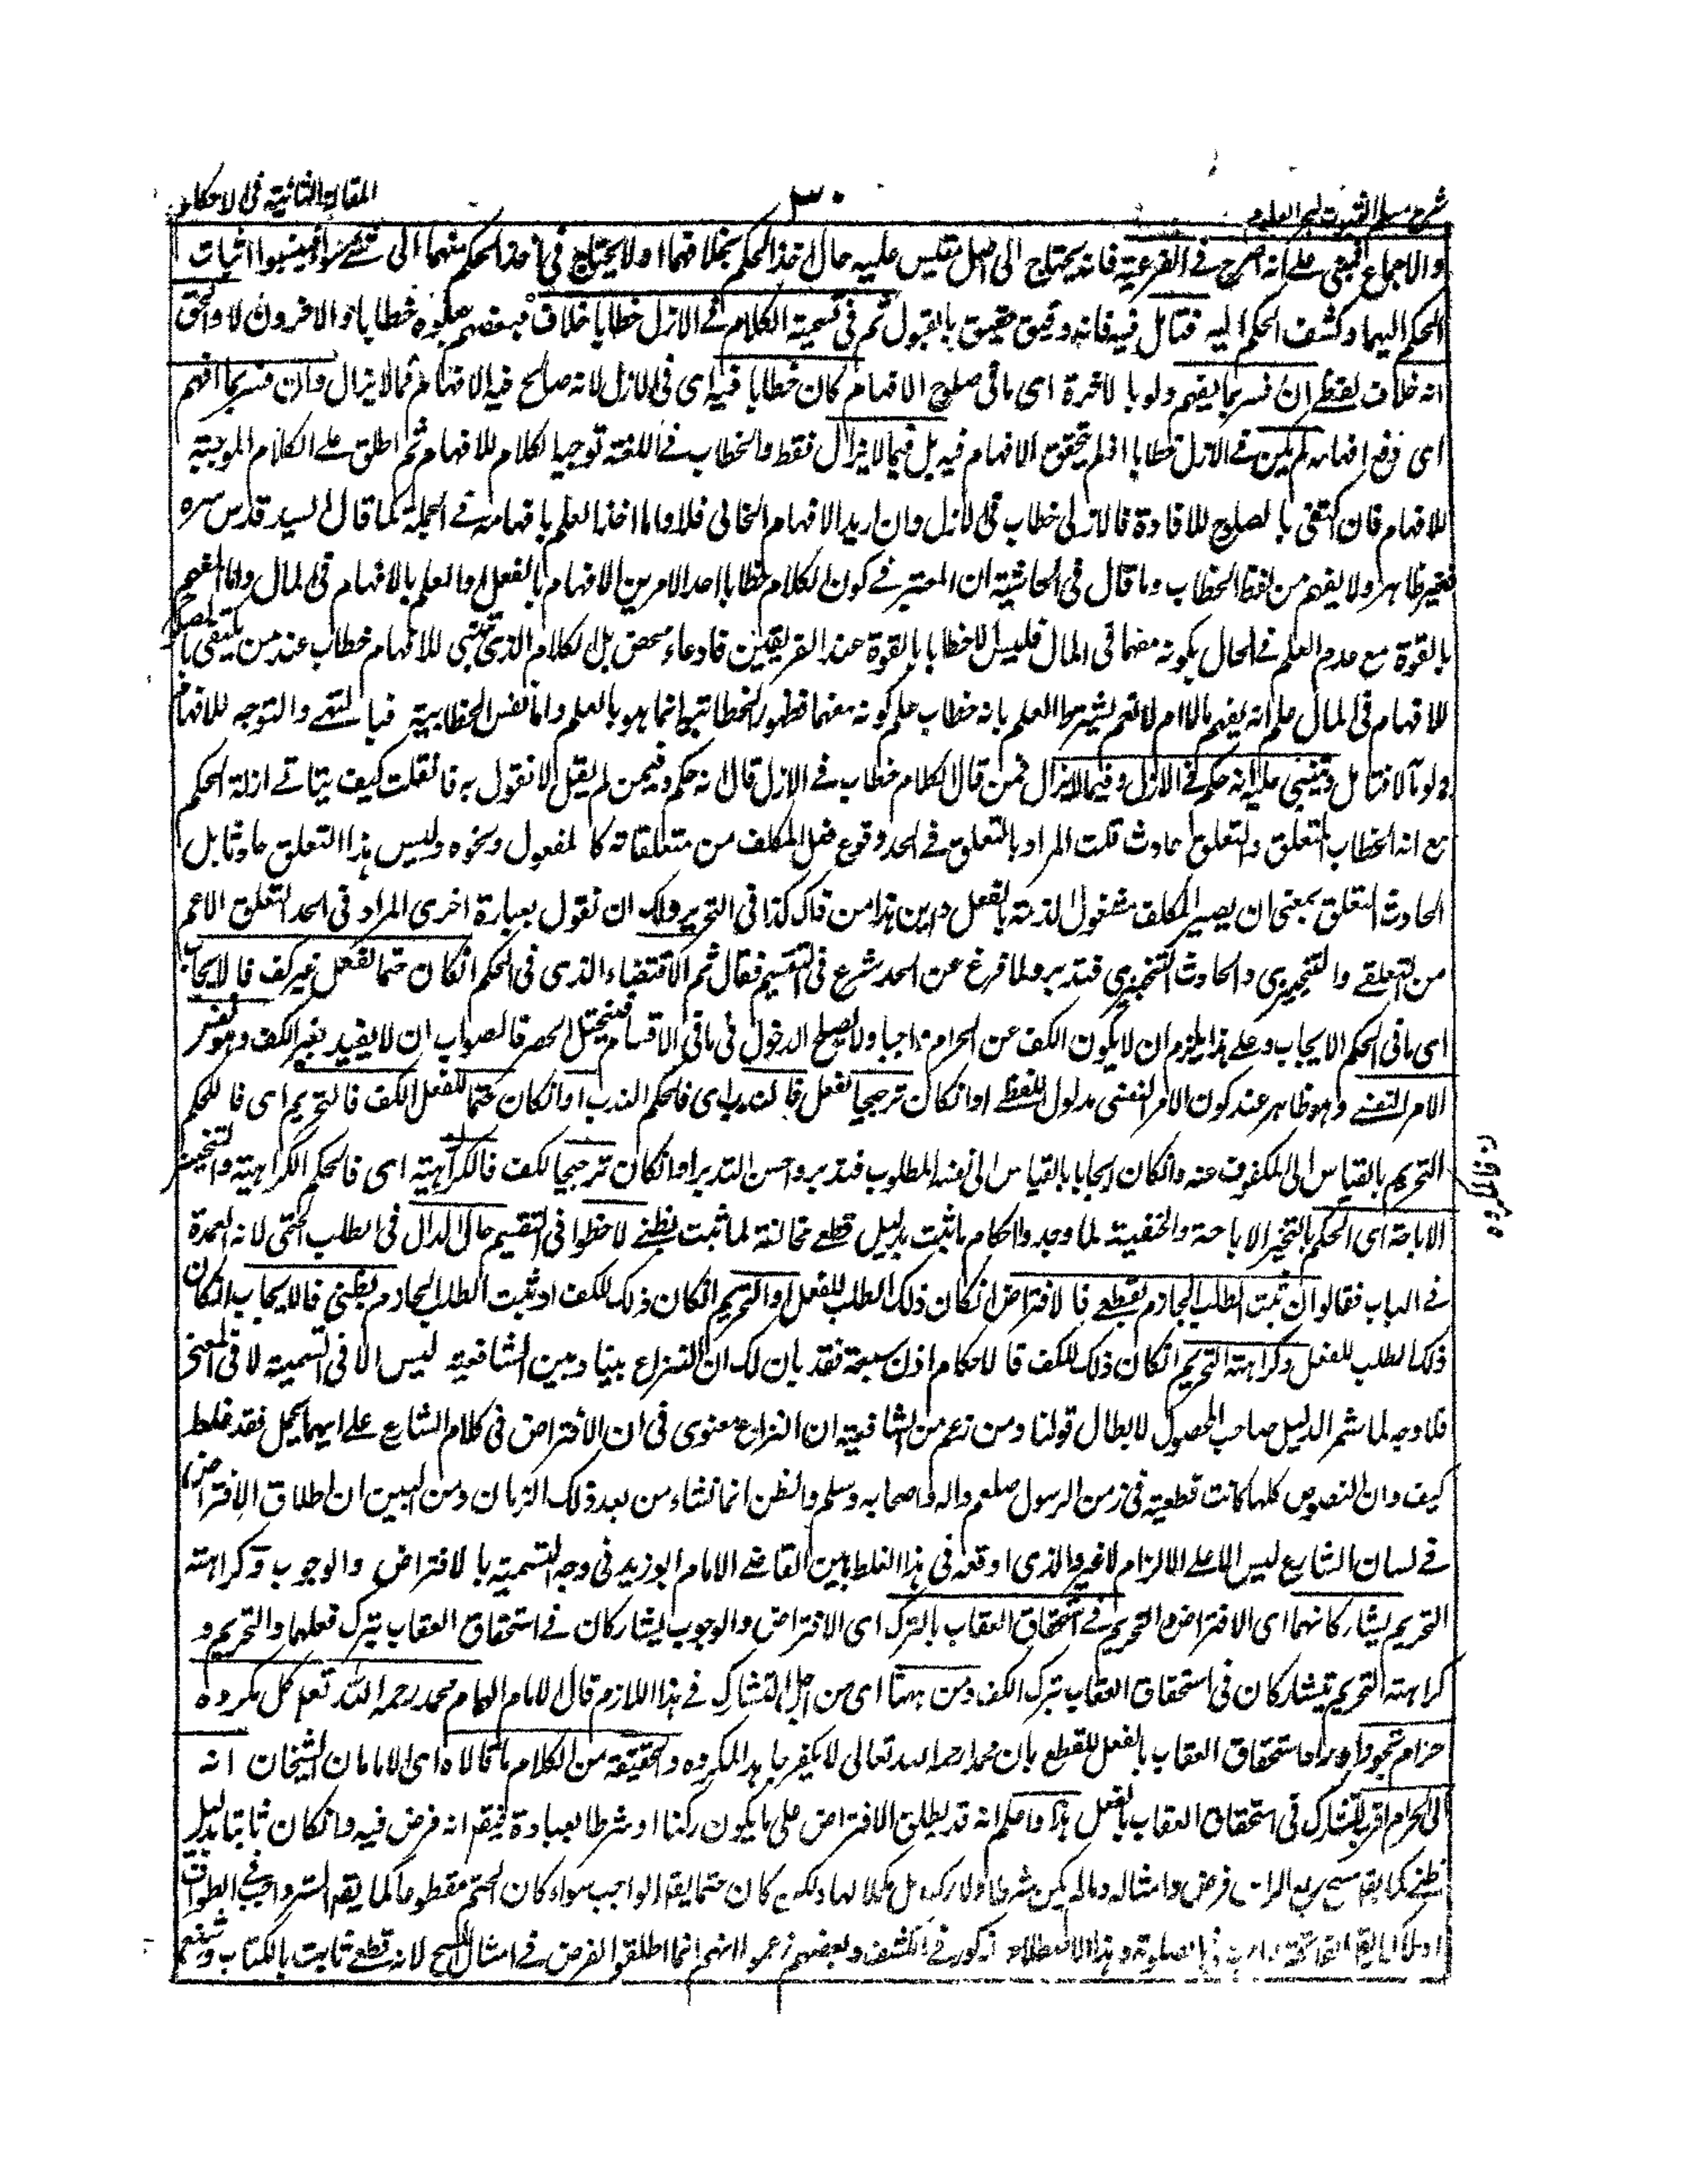 شرح مسلم الثبوت لبحر العلوم
٣٠
المقالة الثانية فى الاحكام
والاجماع المبنى على انه اصرح فے الفرعية فانه يحتاج الى اصل مقيس عليه حال اخذ الحكم بخلافهما اولا يحتاج فى اخذ الحكم منهما الى شئ سواهما اثبات
الحكم اليهما وكشف الحكم اليه فتامل فيه فانه دقيق حقيق بالقبول ثم فى تسمية الكلام فے الازل خطابا خلاف فبعضهم جعلوه خطابا والاخرون لا والحق
انه خلاف لفظے ان فسر بما يفهم ولو بالاخرة اى ما فى صلوح الافهام كان خطابا فيه اى فى الازل لانه صالح فيه الافهام فيما لا يزال وان فسر بما افهم
اى وقع افهامه لم يكن فے الازل خطابا اذ لم يتحقق الافهام فيه بل فيما لا يزال فقط والخطاب فے اللغة توجيه الكلام للافهام ثم اطلق على الكلام الموجه
للافهام فان اكتفى بالصلوح للافادة فالازلى خطاب فى الازل وان اريد الافهام الحالى فلا واما اخذ العلم بافهامه فے الجملة كما قال السيد قدس سره
فغير ظاهر ولا يفهم من لفظ الخطاب وما قال فى الحاشية ان المعتبر فے كون الكلام خطابا احد الامرين الافهام بالفعل او العلم بالافهام فى المال واما المفهم
بالقوة مع عدم العلم فے الحال بكونه مفهما فى المال فليس الا خطابا بالقوة عند الفريقين فادعاء محض بل الكلام الذى تهيئ للافهام خطاب عند من يكتفى بالصلوح
للافهام فى المال علم انه يفهم مالا ام لا نعم يشترط العلم بانه خطاب علم كونه مفهما فظهور الخطابية انما هو بالعلم واما نفس الخطابية فبالتهئ والتوجه للافهام
ولو مآلا فتامل ويبتنى عليه انه حكم فے الازل وفيما لا يزال فمن قال الكلام خطاب فے الازل قال انه حكم وفيه من لم يقل لا نقول به فان قلت كيف يتاتے ازلة الحكم
مع انه الخطاب المتعلق والتعلق حادث قلت المراد بالتعلق فے الحد وقوع فعل المكلف من متعلقاته كالمفعول ونحوه وليس هذا التعلق حادثا بل
الحادث التعلق بمعنى ان يصير المكلف مشغول الذمة بالفعل واين هذا من ذاك كذا فى التحرير ولك ان تقول بعبارة اخرى المراد فى الحد التعلق الاعم
من التعلقے والتنجيزى والحادث التنجيزى فتدبر ولما فرغ عن الحد شرع فى التقسيم فقال ثم الاقتضاء الذى فى الحكم انكان حتما لفعل غير كف فالايجاب
اى ما فى الحكم الايجاب وعلى هذا يلزم ان لا يكون الكف عن الحرام واجبا ولا يصلح الدخول فى باقى الاقسام فيختل الحصر فالصواب ان لا يقيد بغير الكف وهو نفس
الامر النفسے وهو ظاهر عند كون الامر النفسى مدلول اللفظ او انكان ترجيحا لفعل فالندب اى فالحكم الندب او انكان حتما للفعل الكف فالتحريم اى فالحكم
التحريم بالقياس الى المكفوف عنه وانكان ايجابا بالقياس الى نفس المطلوب فتدبر واحسن التدبر او انكان ترجيحا لكف فالكراهية اى فالحكم الكراهية والتخيير
الاباحة اى الحكم بالتخيير الاباحة والحنفية لما وجدوا احكام ما ثبت بدليل قطعے مخالفة لما ثبت بظنے لاحظوا فى التقسيم حال الدال فى الطلب الحتمى لانه العمدة
فے الباب فقالوا ان ثبت الطلب الجازم بقطعے فالافتراض انكان ذلك الطلب للفعل او التحريم انكان ذلك للكف او ثبت الطلب الجازم بظنى فالايجاب انكان
ذلك الطلب للفعل وكراهة التحريم انكان ذلك للكف فالاحكام اذن سبعة فقد بان لك ان النزاع بيننا وبين الشافعية ليس الا فى التسمية لا فى المعنى
فلا وجه لما شمر الذيل صاحب المحصول لابطال قولنا ومن زعم من الشافعية ان النزاع معنوى فى ان الافتراض فى كلام الشارع على ايهما يحمل فقد غلط
كيف وان النصوص كلها كانت قطعية فى زمن الرسول صلعم واله واصحابه وسلم والظن انما نشاء من بعد ذلك الزمان ومن البين ان اطلاق الافتراض
فے لسان الشارع ليس الا على الالزام لا غير والذى اوقعه فى هذا الغلط ما بين القاضے الامام ابو زيد فى وجه التسمية بالافتراض والوجوب وكراهة
التحريم يشاركانهما اى الافتراض والتحريم فے استحقاق العقاب بالترك اى الافتراض والوجوب يشاركان فے استحقاق العقاب بترك فعلهما والتحريم و
كراهة التحريم تيشاركان فى استحقاق العقاب بترك الكف ومن ههنا اى من اجل التشارك فے هذا اللازم قال الامام الهمام محمد رحمه الله تعم كل مكروه
حرام تجوزا وبراد استحقاق العقاب بالفعل للقطع بان محمدا رحمه الله تعالى لا يكفر جاحد المكروه والحقيقة من الكلام ما قالاه اى الامامان الشيخان انه
الى الحرام اقرب للتشارك فى استحقاق العقاب بالفعل هذا واعلم انه قد يطلق الافتراض على ما يكون ركنا او شرطا لعبادة فيقم انه فرض فيه وانكان ثابتا بدليل
ظنے كما يقم مسح ربع الراس فرض وامثاله وما لم يكن شرطا ولا ركنا بل مكملا لها ولكن كان حتما يقم الواجب سواء كان الحتم مقطوعا كما يقم الستر واجب فى الطواف
او لا كما يقم الفاتحة واجب فى الصلوة وهذا الاصطلاح مذكور فے الكشف وبعضهم زعموا انهم انما اطلقوا الفرض فے امثال المسح لانه قطعے ثابت بالكتاب